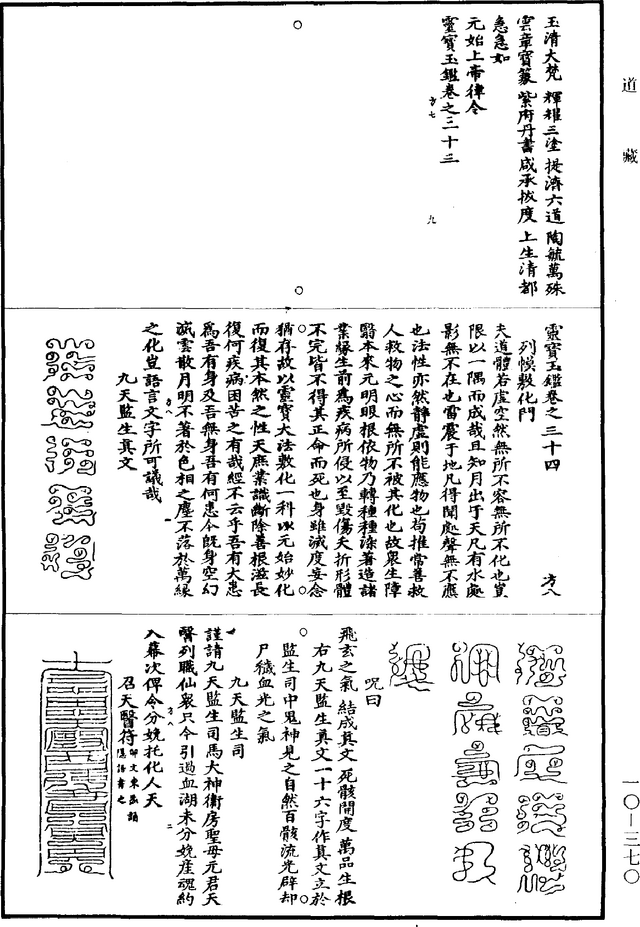 道藏
玉清大梵 輝耀三塗 提濟六道 陶毓萬殊
雲章寶篆 紫府丹書 咸承拔度 上生清都
急急如
元始上帝律令
靈寶玉鑑卷之三十三
方七 九
靈寶玉鑑卷之三十四 方八
列幙敷化門
夫道體若虛空然無所不容無所不化也豈
限以一隅而成哉且知月出于天凡有水處
影無不在也雷震于地凡得聞處聲無不應
也法性亦然靜虛則能應物也苟推常善救
人救物之心而無所不被其化也故眾生障
翳本來元明眼根依物乃轉種種染著造諸
業緣生前為疾病所侵以至毀傷夭折形體
不完皆不得其正命而死也身雖滅度妄念
猶存故以靈寶大法敷化一科以元始妙化
而復其本然之性天庶業識斷除善根滋長
復何疾病困苦之有哉經不云乎吾有大患
為吾有身及吾無身吾有何患今既身空幻
滅雲散月明不著於色相之塵不落於萬緣
之化豈語言文字所可議哉
方八 一
九天監生真文
咒曰
飛玄之氣 結成真文 死骸開度 萬品生根
右九天監生真文一十六字作真文立於
監生司中鬼神見之自然百骸流光辟却
尸穢血光之氣
九天監生司
謹請九天監生司馬大神衛房聖母元君天
醫列職仙眾只今引過血湖未分娩產魂約
方八 二
入幕次俾令分娩托化人天
召天醫符
一〇—三七〇